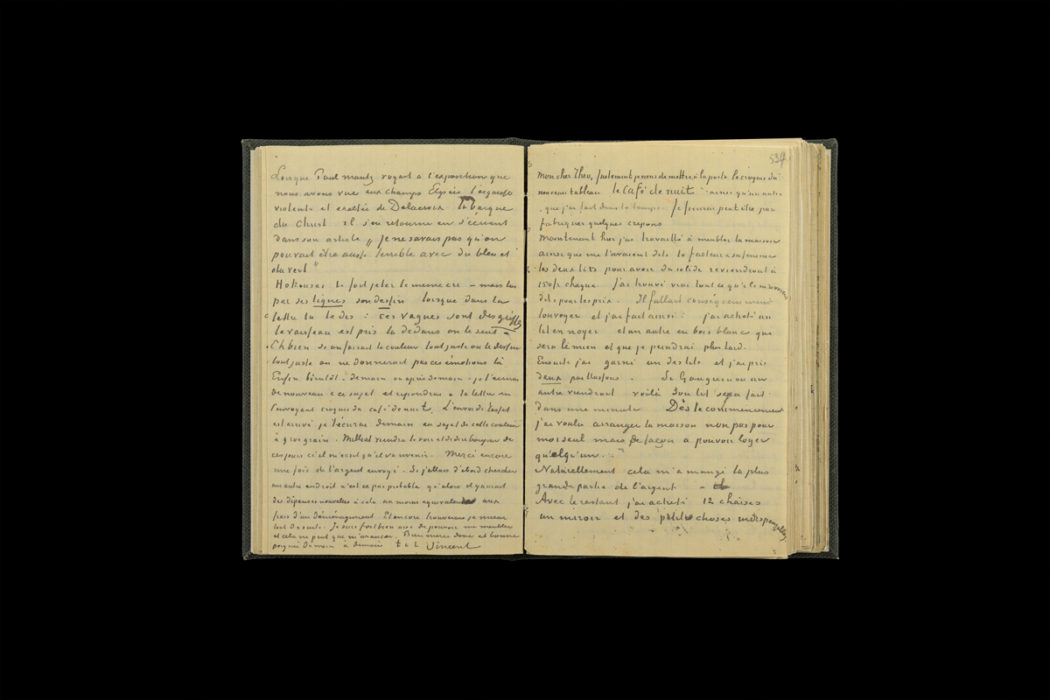 Lorsque Paul Mantz voyait à l'exposition que
nous avons vue aux champs Elysées l'esquisse
violente et exaltée de Delacroix la barque
du Christ il s'en retourne en s'écriant
dans son article „ je ne savais pas qu'on
pouvait être aussi terrible avec du bleu et
du vert"
Hokousai te fait jeter le meme cri – mais lui
par ses lignes son dessin lorsque dans ta
lettre tu te dis : ces vagues sont des griffes
le vaisseau est pris là dedans on le sent
Eh bien si on faisait la couleur tout juste ou le dessin
tout juste on ne donnerait pas ces émotions là
Enfin bientôt – demain ou après demain – je t'écrirai
de nouveau à ce sujet et repondrai à ta lettre en
t'envoyant croquis du café de nuit. L'envoi de Tasset
est arrivé je t'écrirai demain au sujet de cette couleur
à gros grain. Milliet viendra te voir et dire bonjour de
ces jours ci il m'ecrit qu'il va revenir. Merci encore
une fois de l'argent envoyé. Si j'allais d'abord chercher
un autre endroit n'est ce pas probable qu'alors il y aurait
des dépenses nouvelles à cela au moins equivalentes aux
frais d'un déménagement. Et encore trouverais je mieux
tout de suite. Je suis fort bien aise de pouvoir me meubler
et cela ne peut que m'avancer. Bien merci donc et bonne
poignée de main à demain t. à t. Vincent
534
Mon cher Theo, justement je viens de mettre à la poste le croquis du
nouveau tableau le Café de nuit ainsi qu'un autre
que j'ai fait dans le temps. Je finirai peut être par
fabriquer quelques crepons
Maintenant hier j'ai travaillé à meubler la maison
ainsi que me l'avaient dit le facteur et sa femme
les deux lits pour avoir du solide reviendront à
150 fr chaque. J'ai trouvé vrai tout ce qu'ils m'avaient
dit pour les prix. Il fallait conséquemment
louvoyer et j'ai fait ainsi : j'ai acheté un
lit en noyer et un autre en bois blanc qui
sera le mien et que je peindrai plus tard.
Ensuite j'ai garni un des lits et j'ai pris
deux paillasses. Si Gauguin ou un
autre viendrait voilà son lit sera fait
dans une minute Dès le commencement
j'ai voulu arranger la maison non pas pour
moi seul mais de façon à pouvoir loger
quelqu'un.
Naturellement cela m'a mangé la plus
grande partie de l'argent
Avec le restant j'ai acheté 12 chaises
un miroir et des petites choses indispensables